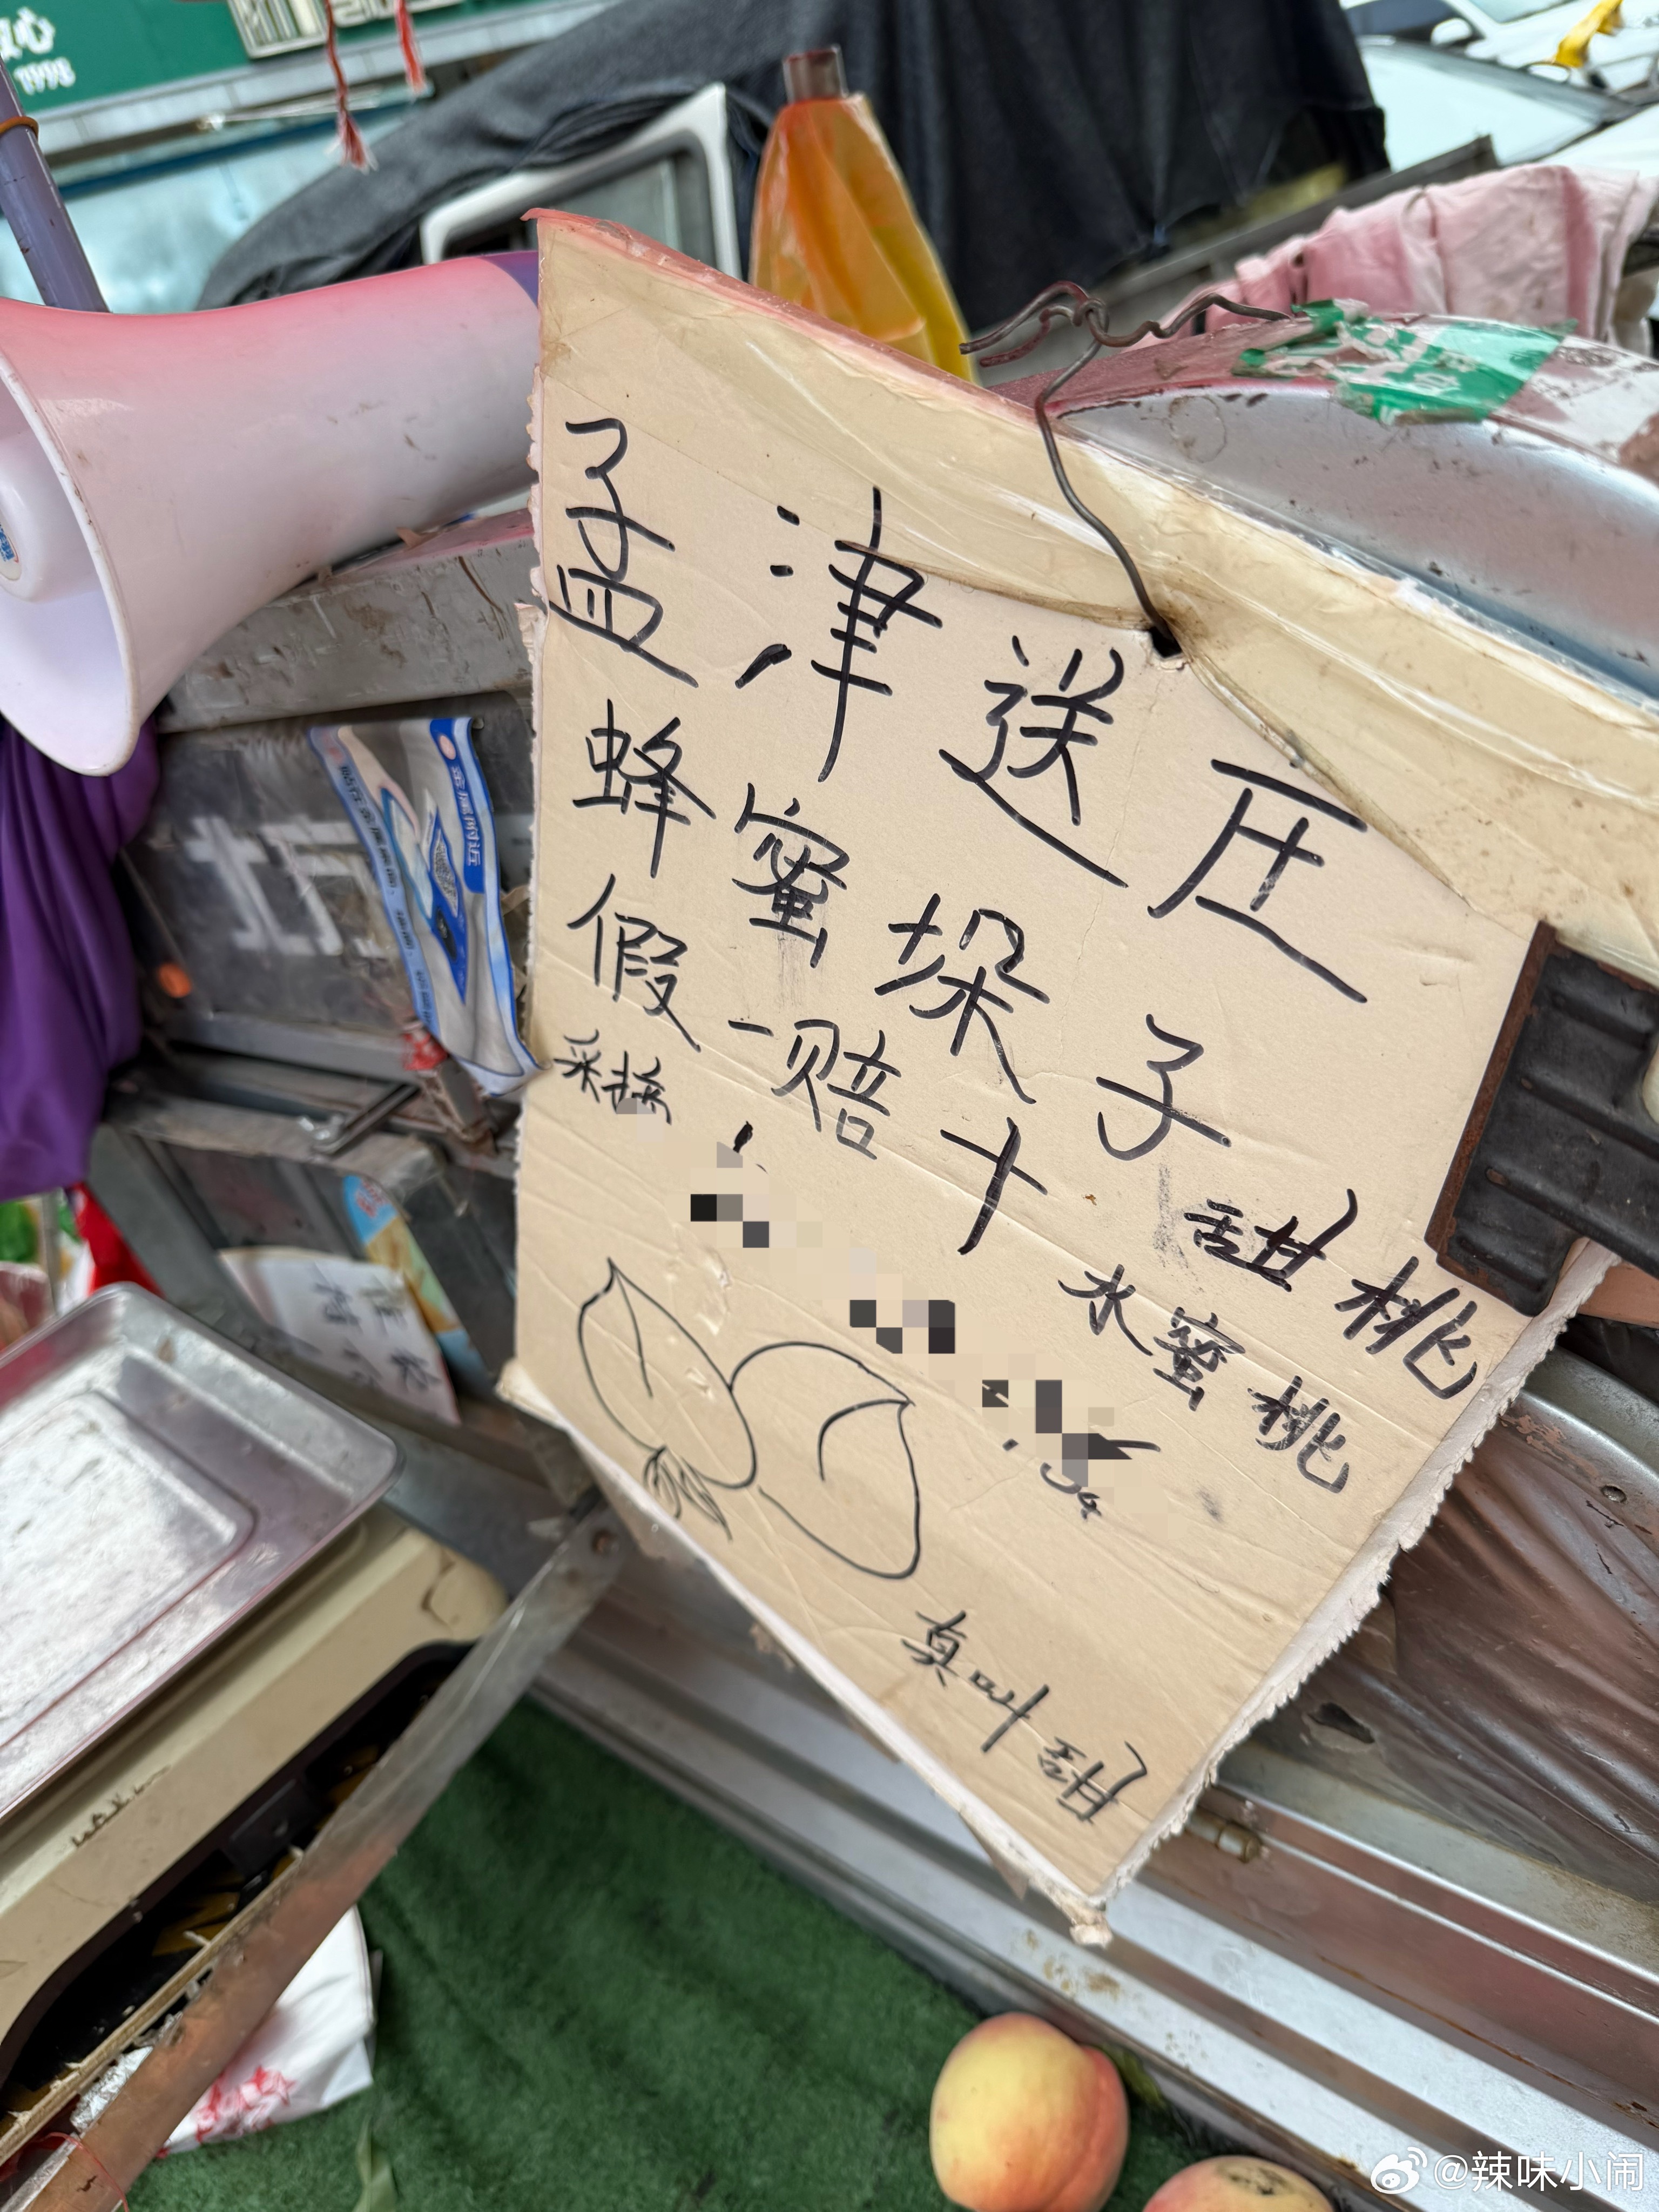 孟津送庄
蜂蜜垛子
假一赔十
采摘
甜桃
水蜜桃
真叫甜
1998
@辣味小闹